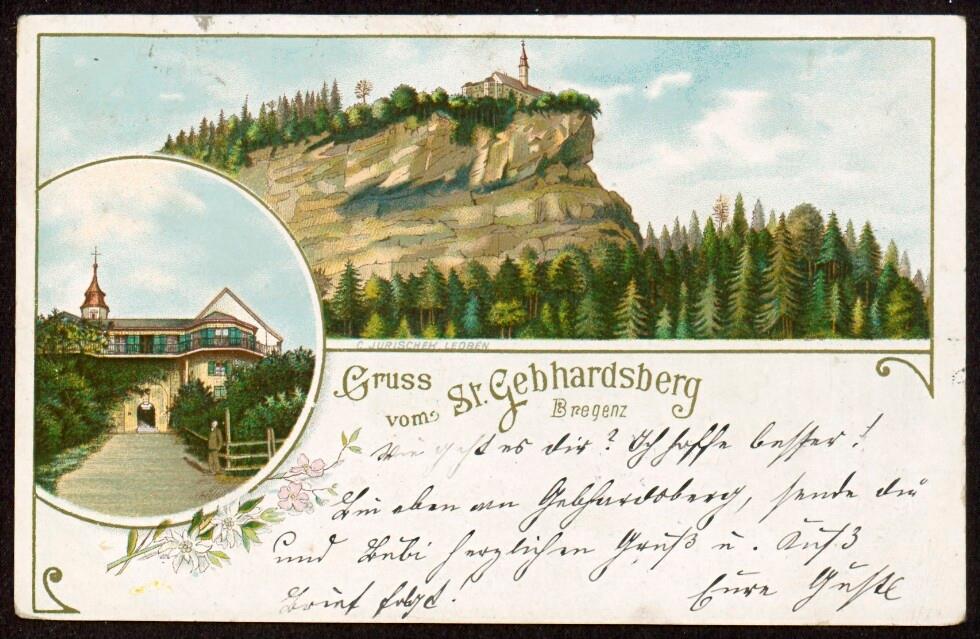 C. JURISCHEK, LEOBEN
Gruss
vom St. Gebhardsberg
Bregenz
Wie geht es dir? Ich hoffe besser!
Bin oben am Gebhardsberg, sende dir
und Bubi herzlichen Gruß u. Kuß
Brief folgt! Eure Gustl